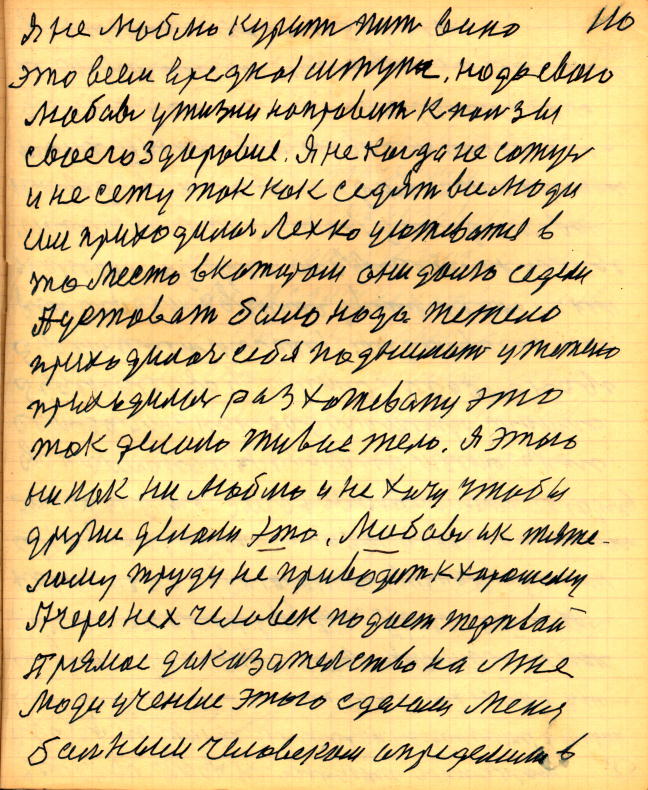 110
Я не люблю курить пить вино
это всем вредная штука, надо свою
любовь у жизни направить к ползы
своего здоровие. Я не когда не сожус
и не сежу так как седят все люди
им приходилось лехко усаживатся в
то место в катором они долго седели
А уставать было нада тежело
приходилось себя подымать и тежело
приходилось разхаживату это
так делало живие тело. Я этого
ни как ни люблю и не хачу чтобы
другие делали это. Любовь ик тяже-
лому труду не приводит к харошему
А через нех человек подает жертвай
Прямое даказателство на мне
люди ученые этого сделали меня
больным человеком определили в